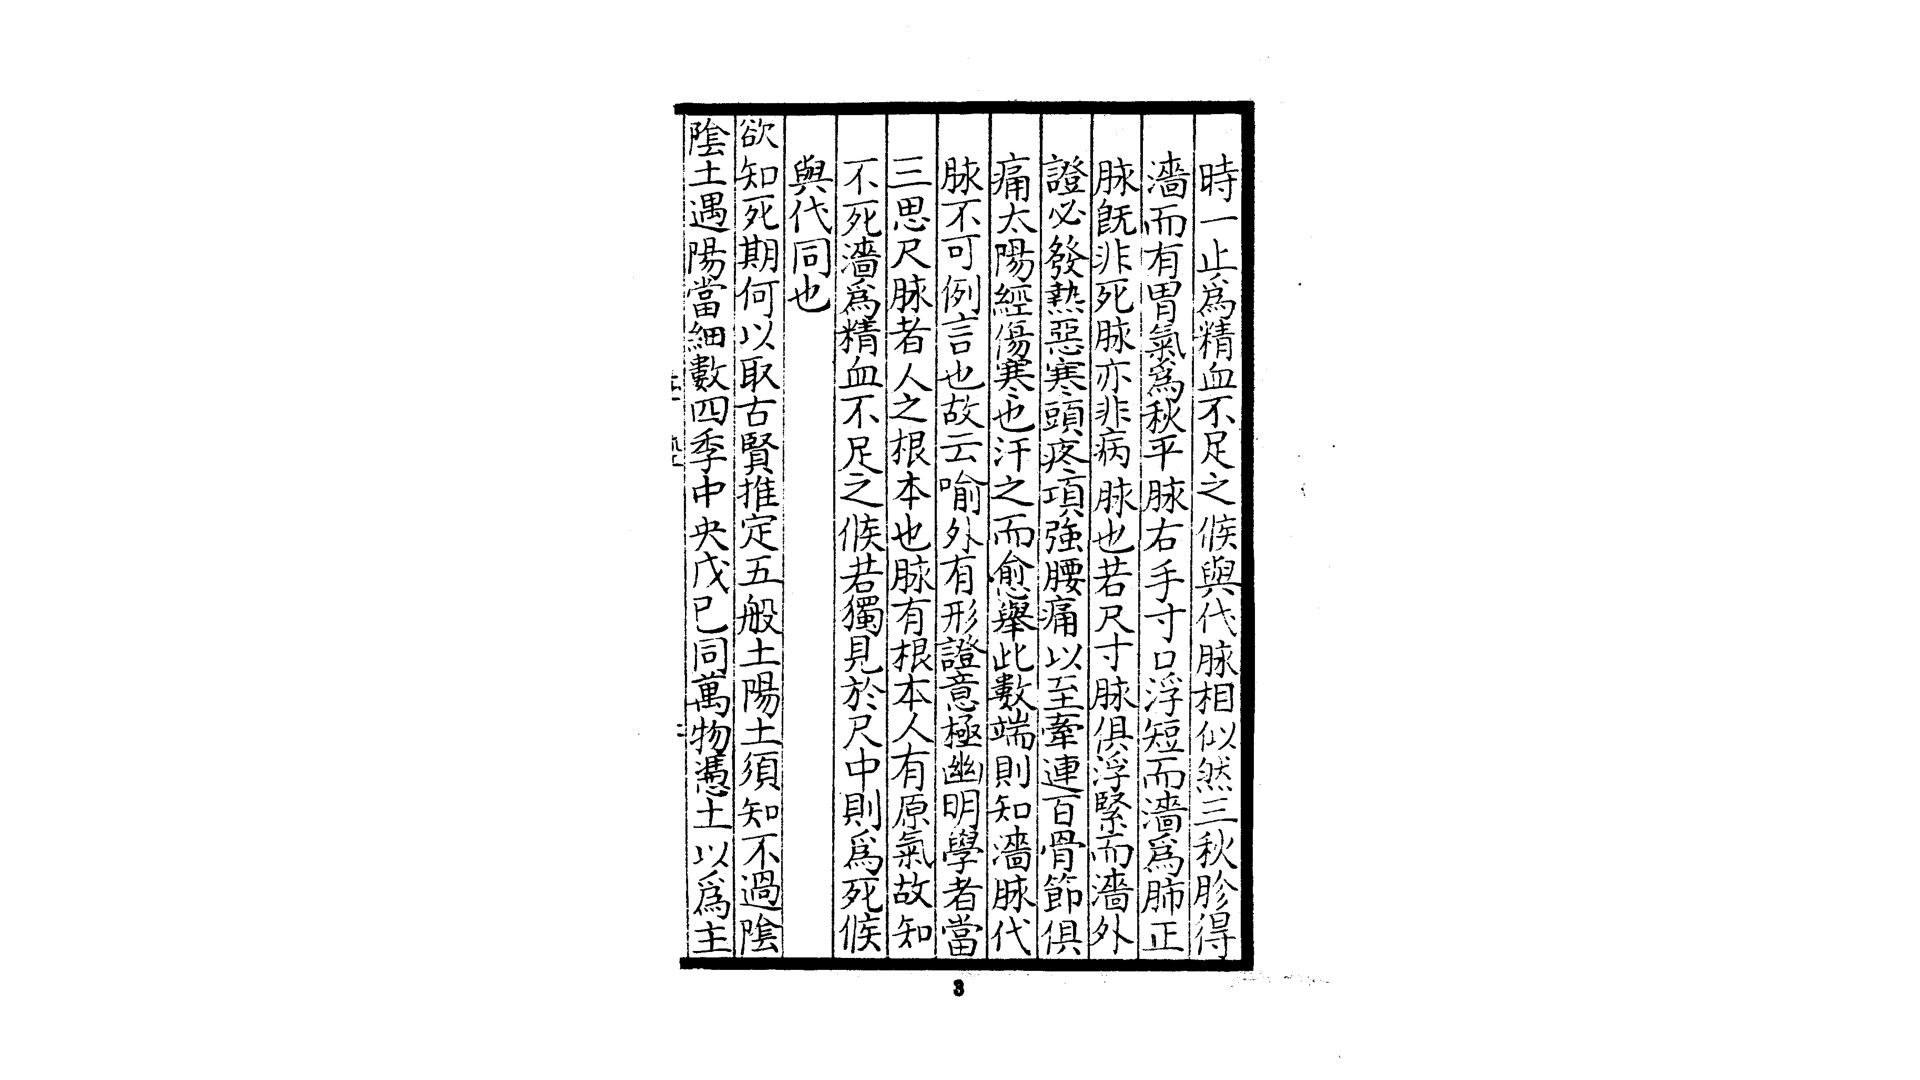 時一止爲精血不足之候與代脉相似然三秋胗得
濇而有胃氣爲秋平脉右手寸口浮短而濇爲肺正
脉旣非死脉亦非病脉也若尺寸脉俱浮緊而濇外
證必發熱惡寒頭疼項強腰痛以至牽連百骨節俱
痛太陽經傷寒也汗之而愈舉此數端則知濇脉代
脉不可例言也故云喻外有形證意極幽明學者當
三思尺脉者人之根本也脉有根本人有原氣故知
不死濇爲精血不足之候若獨見於尺中則爲死候
與代同也
欲知死期何以取古賢推定五般土陽土須知不過陰
陰土遇陽當細數四季中央戊己同萬物憑土以爲主
3